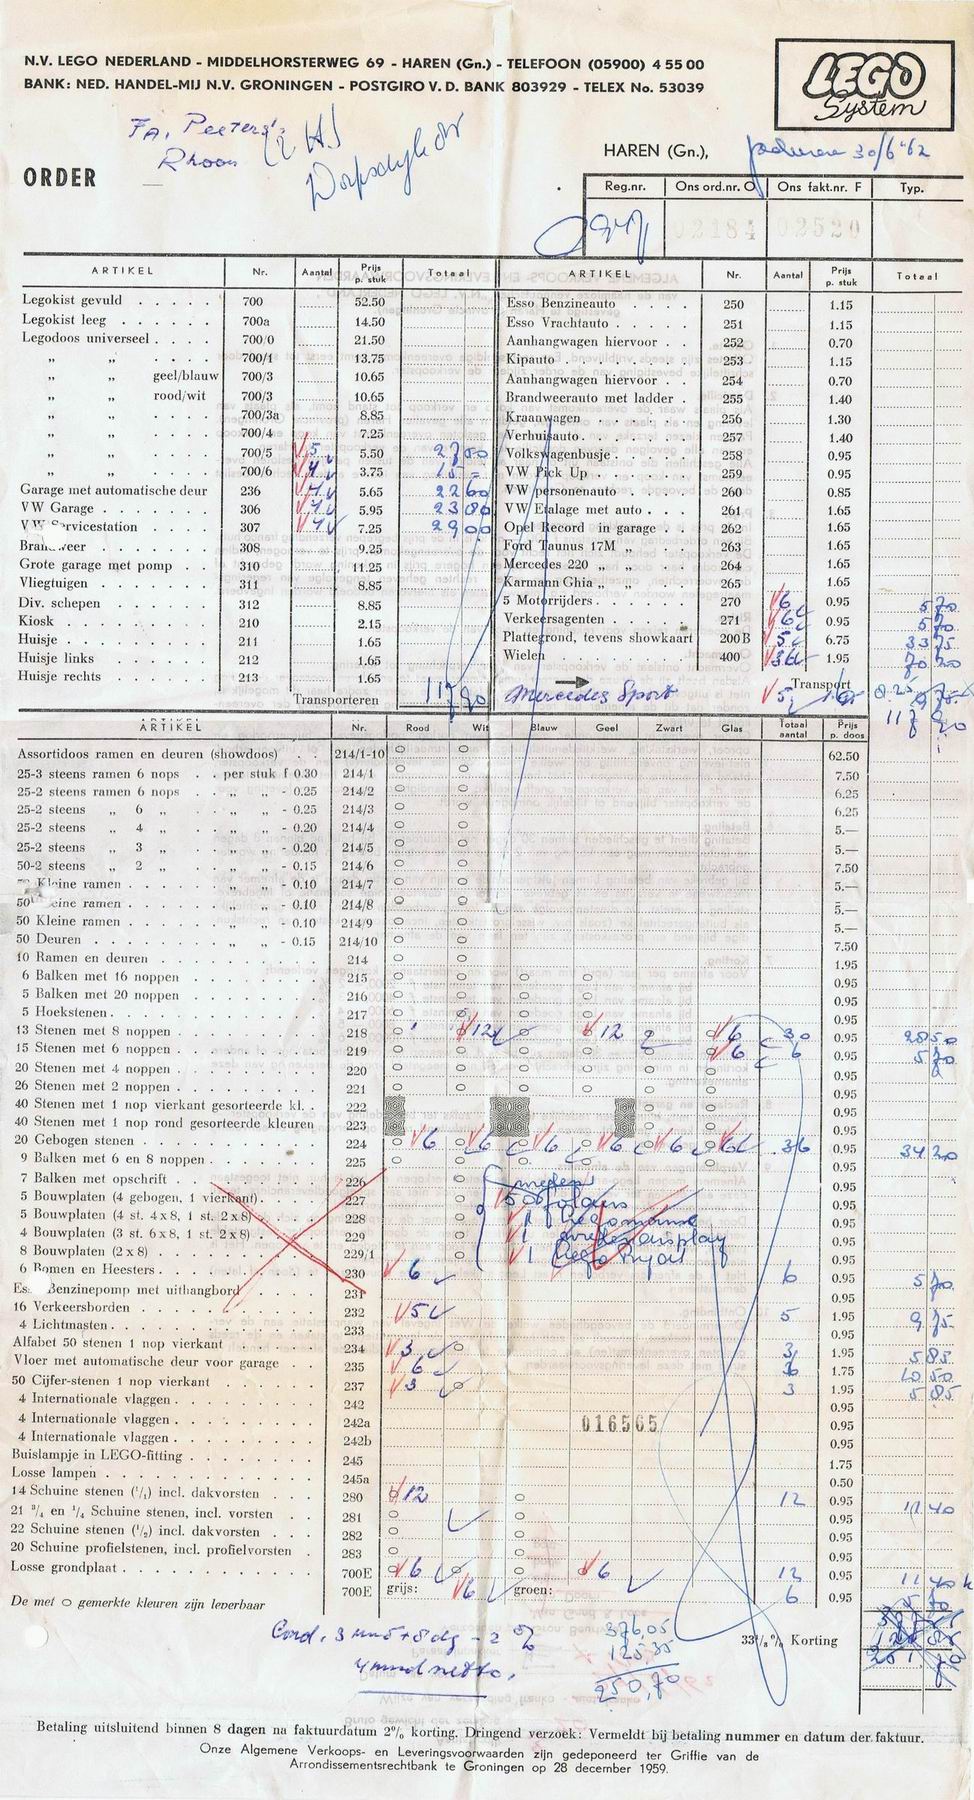 N.V. LEGO NEDERLAND - MIDDELHORSTERWEG 69 - HAREN (Gn.) - TELEFOON (05900) 4 55 00
BANK: NED. HANDEL-MIJ N.V. GRONINGEN - POSTGIRO V. D. BANK 803929 - TELEX No. 53039
LEGO
System
Fa. Peeters
Rhoon
HAREN (Gn.), 30/6 '62
ORDER
Reg.nr. Ons ord.nr. O Ons fakt.nr. F Typ.
02184 02520
ARTIKEL Nr. Aantal Prijs p. stuk Totaal
Legokist gevuld 700 52.50
Legokist leeg 700a 14.50
Legodoos universeel 700/0 21.50
„ „ 700/1 13.75
„ „ geel/blauw 700/3 10.65
„ „ rood/wit 700/3 10.65
„ „ 700/3a 8.85
„ „ 700/4 7.25
„ „ 700/5 5 5.50 27 50
„ „ 700/6 4 3.75 15 -
Garage met automatische deur 236 4 5.65 22 60
VW Garage 306 4 5.95 23 80
VW Servicestation 307 4 7.25 29 00
Brandweer 308 9.25
Grote garage met pomp 310 11.25
Vliegtuigen 311 8.85
Div. schepen 312 8.85
Kiosk 210 2.15
Huisje 211 1.65
Huisje links 212 1.65
Huisje rechts 213 1.65
Transporteren 117 90
ARTIKEL Nr. Aantal Prijs p. stuk Totaal
Esso Benzineauto 250 1.15
Esso Vrachtauto 251 1.15
Aanhangwagen hiervoor 252 0.70
Kipauto 253 1.15
Aanhangwagen hiervoor 254 0.70
Brandweerauto met ladder 255 1.40
Kraanwagen 256 1.30
Verhuisauto 257 1.40
Volkswagenbusje 258 0.95
VW Pick Up 259 0.95
VW personenauto 260 0.85
VW Etalage met auto 261 1.65
Opel Record in garage 262 1.65
Ford Taunus 17M „ 263 1.65
Mercedes 220 „ „ 264 1.65
Karmann Ghia „ „ 265 1.65
5 Motorrijders 270 6 0.95 5 70
Verkeersagenten 271 6 0.95 5 70
Plattegrond, tevens showkaart 200B 5 6.75 33 75
Wielen 400 36 1.95 70 20
Transport
Mercedes Sport 5
117 90
ARTIKEL Nr. Rood Wit Blauw Geel Zwart Glas Totaal aantal Prijs p. doos
Assortidoos ramen en deuren (showdoos) 214/1-10 62.50
25-3 steens ramen 6 nops per stuk f 0.30 214/1 7.50
25-2 steens ramen 6 nops „ „ - 0.25 214/2 6.25
25-2 steens „ 6 „ „ „ - 0.25 214/3 6.25
25-2 steens „ 4 „ „ „ - 0.20 214/4 5.—
25-2 steens „ 3 „ „ „ - 0.20 214/5 5.—
50-2 steens „ 2 „ „ „ - 0.15 214/6 7.50
Kleine ramen „ „ - 0.10 214/7 5.—
50 Kleine ramen „ „ - 0.10 214/8 5.—
50 Kleine ramen „ „ - 0.10 214/9 5.—
50 Deuren „ „ - 0.15 214/10 7.50
10 Ramen en deuren 214 1.95
6 Balken met 16 noppen 215 0.95
5 Balken met 20 noppen 216 0.95
5 Hoekstenen 217 0.95
13 Stenen met 8 noppen 218 12 12 6 30 0.95 28 50
15 Stenen met 6 noppen 219 6 6 0.95 5 70
20 Stenen met 4 noppen 220 0.95
26 Stenen met 2 noppen 221 0.95
40 Stenen met 1 nop vierkant gesorteerde kl. 222 0.95
40 Stenen met 1 nop rond gesorteerde kleuren 223 0.95
20 Gebogen stenen 224 6 6 6 6 6 6 36 0.95 34 20
9 Balken met 6 en 8 noppen 225 0.95
7 Balken met opschrift 226 0.95
5 Bouwplaten (4 gebogen, 1 vierkant) 227 500 folders 0.95
5 Bouwplaten (4 st. 4x8, 1 st. 2x8) 228 1 0.95
4 Bouwplaten (3 st. 6x8, 1 st. 2x8) 229 1 display 0.95
8 Bouwplaten (2x8) 229/1 1 Lego 0.95
6 Bomen en Heesters 230 6 6 0.95 5 70
Benzinepomp met uithangbord 231 0.95
16 Verkeersborden 232 5 5 1.95 9 75
4 Lichtmasten 233 0.95
Alfabet 50 stenen 1 nop vierkant 234 3 3 1.95 5 85
Vloer met automatische deur voor garage 235 6 6 1.75 10 50
50 Cijfer-stenen 1 nop vierkant 237 3 3 1.95 5 85
4 Internationale vlaggen 242 0.95
4 Internationale vlaggen 242a 016565 0.95
4 Internationale vlaggen 242b 0.95
Buislampje in LEGO-fitting 245 1.75
Losse lampen 245a 0.50
14 Schuine stenen (¹/₁) incl. dakvorsten 280 12 12 0.95 11 40
21 ³/₄ en ¹/₄ Schuine stenen, incl. vorsten 281 0.95
22 Schuine stenen (¹/₂) incl. dakvorsten 282 0.95
20 Schuine profielstenen, incl. profielvorsten 283 0.95
Losse grondplaat 700E 6 6 12 0.95 11 40
700E grijs: 6 groen: 6 0.95 5 70
De met o gemerkte kleuren zijn leverbaar
33¹/₃% Korting
376,05
125,35
250,70
Betaling uitsluitend binnen 8 dagen na faktuurdatum 2% korting. Dringend verzoek: Vermeldt bij betaling nummer en datum der faktuur.
Onze Algemene Verkoops- en Leveringsvoorwaarden zijn gedeponeerd ter Griffie van de
Arrondissementsrechtbank te Groningen op 28 december 1959.